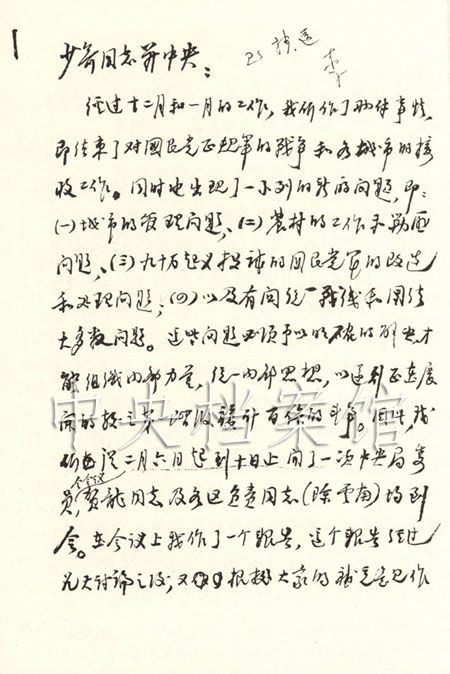 1
少奇同志并中央：
经过十二月和一月的工作，我们作了两件事情，
即结束了对國民党正规军的战争和各城市的接
收工作。同时也出现了一系列的新的问题，即：
(一)城市的管理问题、(二)農村的工作及剿匪
问题、(三)九十万起义投诚的国民党军的改造
和处理问题；(四)以及有关统一战线和团结
大多数问题。这些问题必须予以明确的解决，才
能组织内部力量，统一内部思想，以达到正在展
开的 百倍的斗争。因此，我
们 从二月六日起到十日止开了一次中央局委
员会议，
贺龍同志及各区负责同志(除雲南)均到
会。在会议上我作了一个報告，这个報告经过
几天讨論之後，又根据大家的補充意见作
中央档案馆